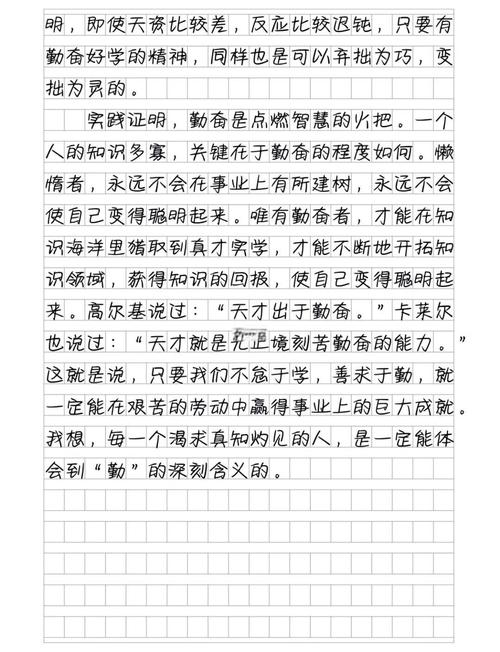 明，即使天资比较差，反应比较迟钝，只要有
勤奋好学的精神，同样也是可以弃拙为巧，变
拙为灵的。
实践证明，勤奋是点燃智慧的火把。一个
人的知识多寡，关键在于勤奋的程度如何。懒
惰者，永远不会在事业上有所建树，永远不会
使自己变得聪明起来。唯有勤奋者，才能在知
识海洋里猎取到真才实学，才能不断地开拓知
识领域，获得知识的回报，使自己变得聪明起
来。高尔基说过：“天才出于勤奋。”卡莱尔
也说过：“天才就是无止境刻苦勤奋的能力。”
这就是说，只要我们不怠于学，善求于勤，就
一定能在艰苦的劳动中赢得事业上的巨大成就。
我想，每一个渴求真知灼见的人，是一定能体
会到“勤”的深刻含义的。